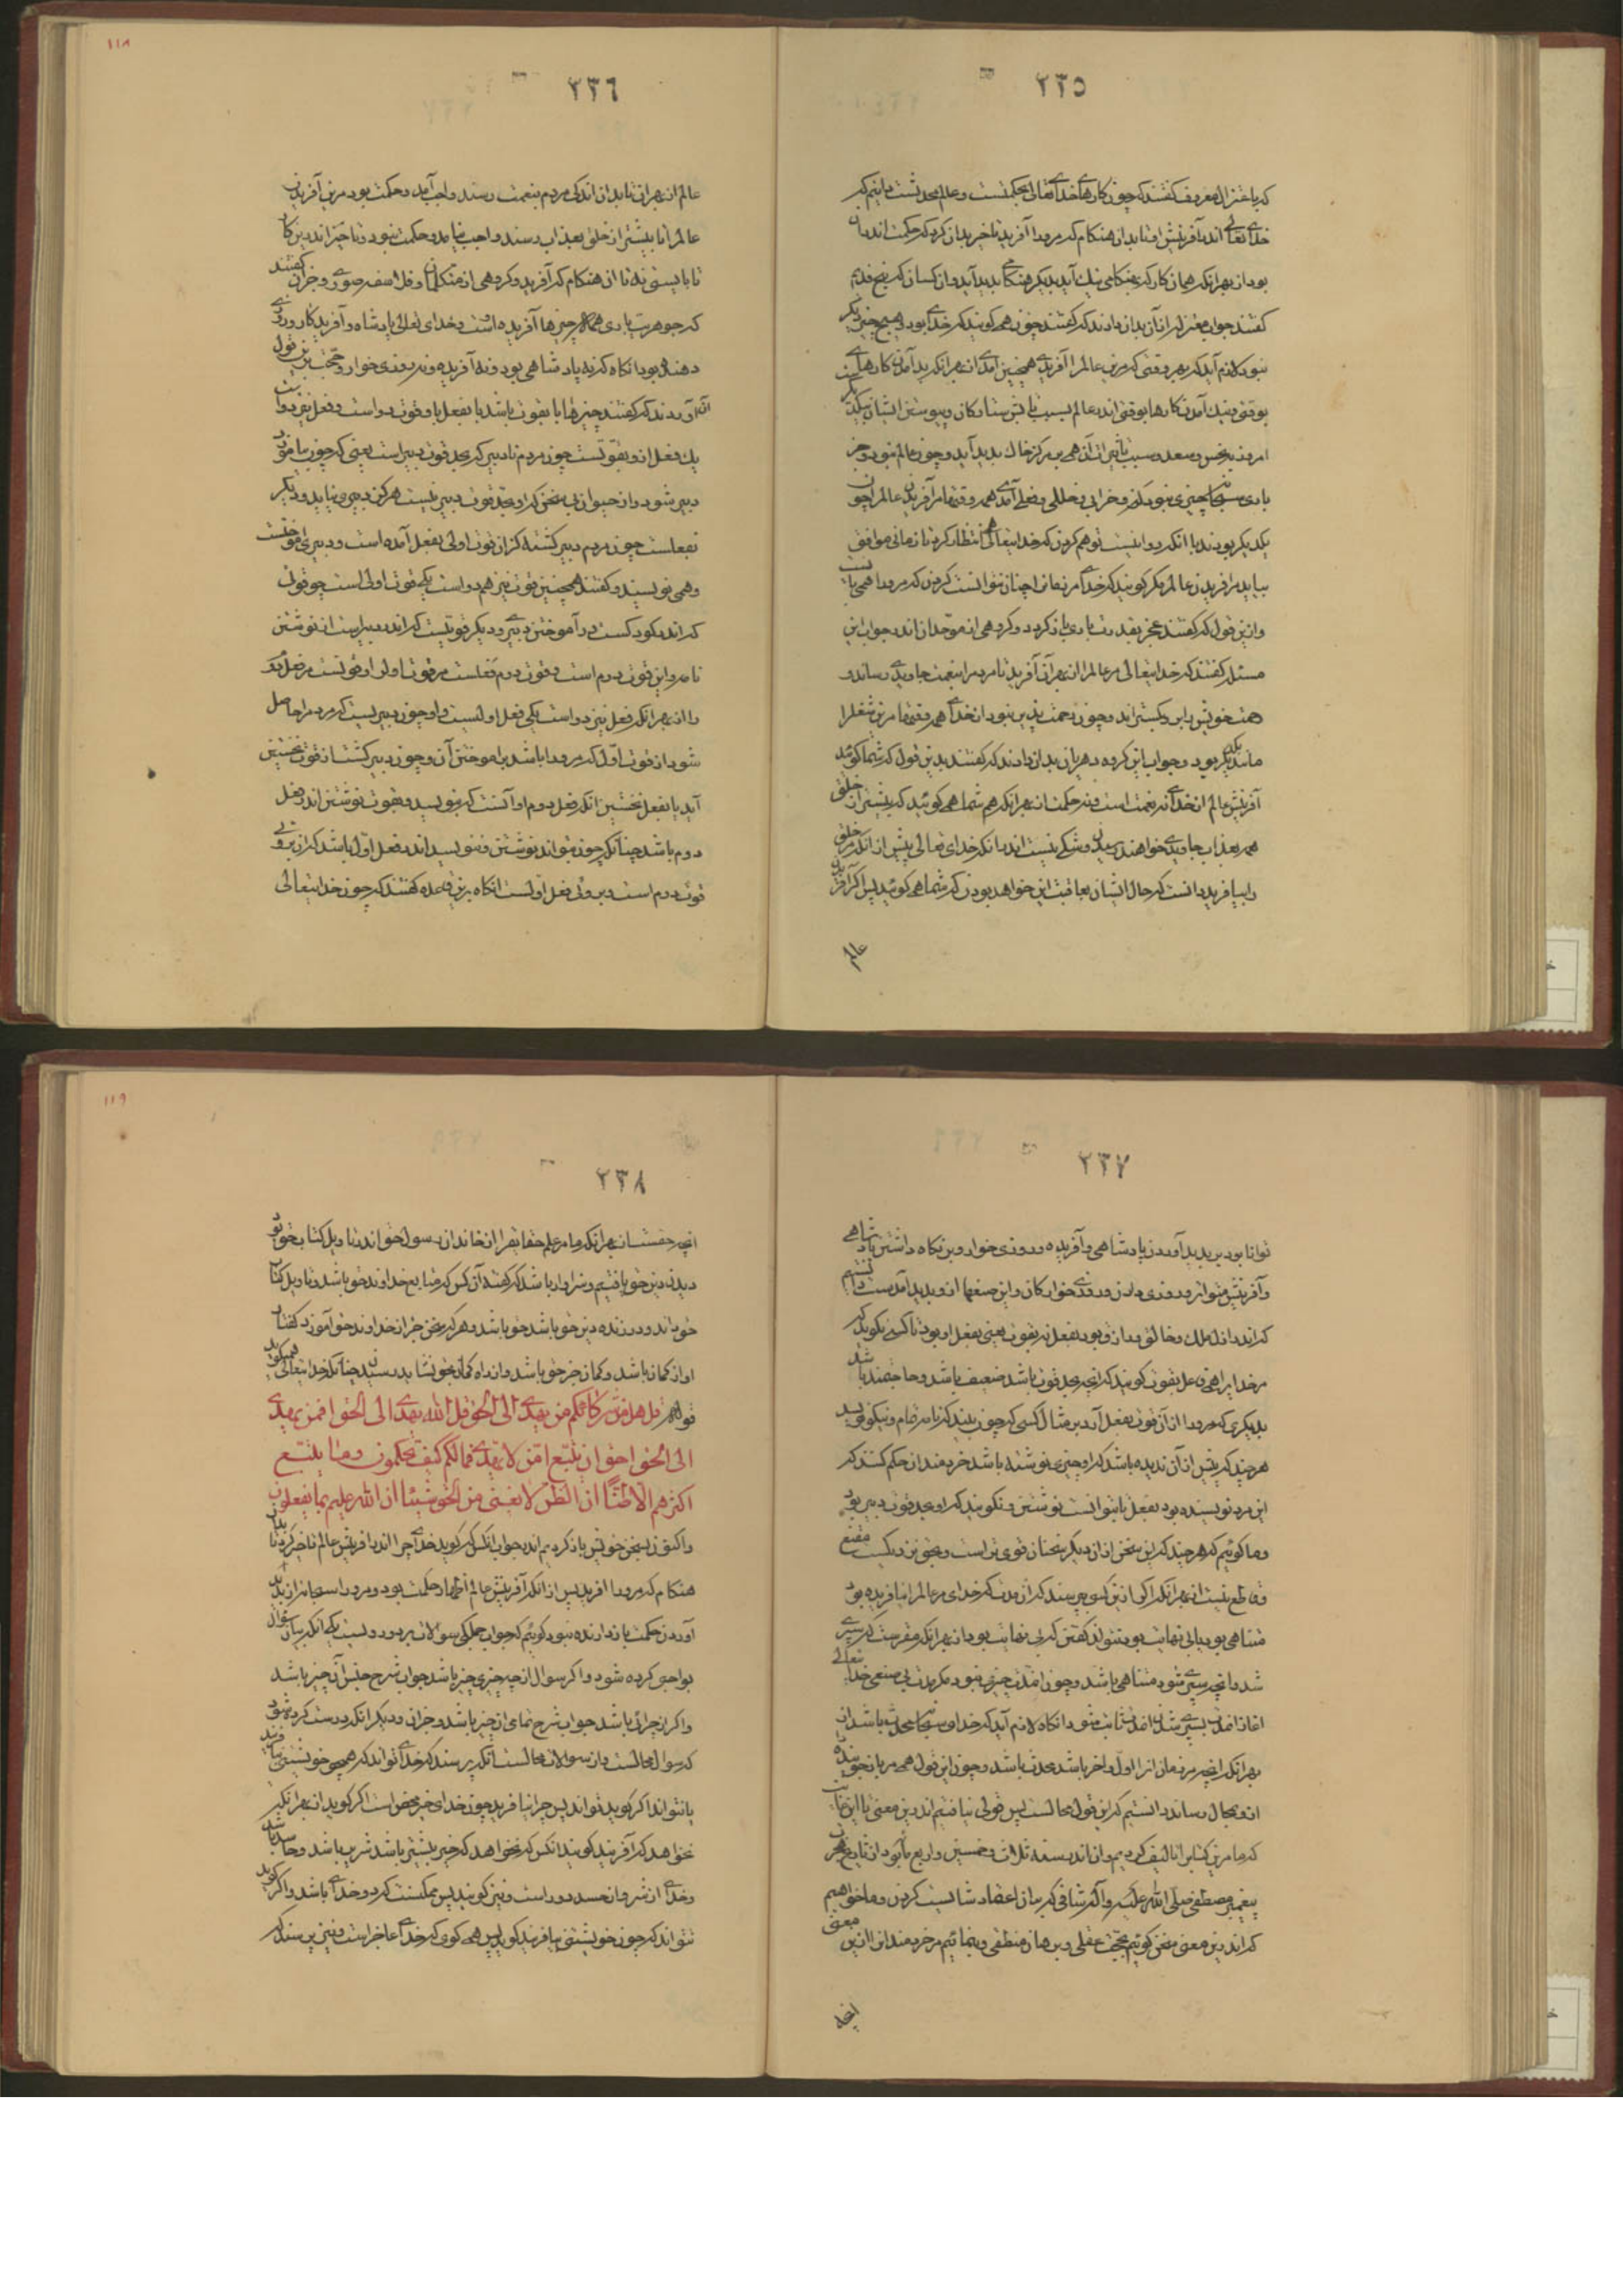 ۲۳۵
که باعتزال معروفند گفتند که چون کارهاء خدای تعالی بحکمتست و عالم محدثست دانیم که
خدای تعالی اندر آفرینش او تا بدان هنگام که مرورا آفرید تاخیر بدان کرد که حکمت اندر آن
بود از بهر آنکه همان کار که بهنگامی نیک آید بدیگر هنگام بد آید و آن کسان که پنج قدیم
گفتند جواب معتزله را از آن بدان دادند که گفتند چون همی گویند که خدای بود و هیچ چیز دیگر
نبود لازم آید که بهر وقتی که مرین عالم را آفریدی همچنین آمدی از بهر آنکه بد آمدن کارهای
بوقتی و نیک آمدن کارها بوقتی اندر عالم بسبب تاثیر ستارگان و پیوستن ایشان بیکدیگر
امروز بنحس و سعد و سبب تاثیرات آن همی بر مرکز خاک پدید آید و چون عالم نبود و جز
باری سبحانه چیزی نبود کز و خرابی و خللی و فعلی آمدی همه وقتها مر آفریدن عالم را چون
یکدیگر بودند با آنکه روا نیست توهم کردن که خدایتعالی همی انتظار کرد تا زمانی موافق
بیاید مر آفریدن عالم را مگر گویند که خدای مر زمان را چنان نتوانست کردن که مرورا همی بایست
و از این قول که گفتند عجز بقدرت باری باز گردد و گروهی از موحدان اندر جواب این
مسئله گفتند که خدایتعالی مر عالم را از بهر آن آفرید تا مردم را بنعمت جاویدی رساند و
رحمت خویش برو بگستراند و چون رحمت پذیر نبود از خدای همه وقتها مرین شغل را
مانند یکدیگر بود و جواب این گروه دهریان بدان دادند که گفتند بدین قول که شما گوئید
آفرینش عالم از خدای نه نعمت است و نه حکمت از بهر آنکه هم شما همی گوئید که بیشتر از خلق
همی بعذاب جاویدی خواهند رسیدن و شکی نیست اندر آنکه خدای تعالی پیش از آنکه مر خلق
را بیافرید دانست که حال ایشان بعاقبت این خواهد بودن که شما همی گوئید پس اگر آفریدن
عالم
۲۳۶
۱۱۸
عالم از بهر آن تا بدان اندکی مردم بنعمت رسند واجب آمد و حکمت بود مرین آفریدن
عالم را تا بیشتر از خلق بعذاب رسند واجب نیامد و حکمت نبود و تاخیر اندرین کار
نا بایستی نه تا آن هنگام که آفرید و گروهی از متکلمان و فلاسفه صوری و جز آن گفتند
که جوهریت باری همه چیزها آفریده است و خدای تعالی پادشاه و آفریدگار و روزی
دهنده بود آنگاه که نه پادشاهی بود و نه آفریده و نه روزی خوار و حجت برین قول
آن آوردند که گفتند چیزها یا بقوت باشد یا بفعل یا و قوت دو است و فعل نیز دو است
یک فعل از و بقوتست چون مردم نادبیر که بحد قوت دبیر است یعنی که چون بیاموزد
دبیر شود و از حیوان بی سخن که او بحد قوت دبیر نیست هرگز دبیری نیاید و دیگر
بفعلست چون مردم دبیر گشته کز آن قوت اولی بفعل آمده است و دبیری آموختست
و همی نویسد و گفتند همچنین قوت نیز هم دو است یکی قوت اولی است چو قوتی
که اندر کودکست در آموختن دبیری و دیگر قوتیست که اندر دبیر است از نوشتن
نامه و این قوت دوم است و قوت دوم فعلست مر قوت اولی را و قوتست مر فعل دوم
را از بهر آنکه فعل نیز دو است یکی فعل اولیست و او چون دبیریست که مردم را حاصل
شود از قوت اول که مرورا باشد بر آموختن آن و چون دبیر گشت از قوت نخستین
آید با بفعل نخستین آنکه فعل دوم او آنست که بنویسد و بقوت نوشتن اندر فعل
دوم باشد چنانکه چون بتواند نوشتن و ننویسد اندر فعل اول باشد که از بروی
قوت دوم است و بروی فعل اولست آنگاه برین قاعده گفتند که چون خدایتعالی
۲۳۷
توانا بود بر پدید آوردن پادشاهی و آفریده و روزی خوار و برنگاه داشتن پادشاهی
و آفرینش متواتر و روزی دادن روزی خوارگان و این صنعها ازو پدید آمدست دانستیم
که اندر ازل ملک و خالق و رازق بود بفعل نه بقوت یعنی بفعل او بود تا کسی نگوید که
مر خدایرا همی فاعل بقوت گویند که آنچه بحد قوت باشد ضعیف باشد و حاجتمند باشد
بدیگری که مرورا از آن قوت بفعل آرد بر مثال کسی که چون بیند که نامه تمام و نیکو نویسد
هر چند که پیش از آن ندیده باشد که او چیزی نوشته باشد خردمندان حکم کنند که
این مرد نویسنده بود بفعل تا بتوانست نوشتن و نگویند که او بحد قوت دبیر بود
و ما گوئیم که هر چند که این سخن از آن دیگر سخنان قوی تر است و بحق نزدیکست مقنع
و قاطع نیست از بهر آنکه اگر از این کسی پرسند که آن مدت که خدای مر عالم را نیافریده بود
متناهی بود یا بی نهایت بود نتواند گفتن که بی نهایت بود از بهر آنکه مقر است که سپری
شد و آنچه سپری شود متناهی باشد و چون از مدت چیزی نبود مگر مدت بی صنعی خدای تعالی
آغاز آن مدت بسپری شدن آن مدت ثابت شود و آنگاه لازم آید که خدای سبحانه محدث باشد از
بهر آنکه آنچه مر زمان او را اول و آخر باشد محدث باشد و چون این قول همی مر باز جوینده
ازو بمحال رساند دانستیم که این قول محالست پس قولی نیافتیم اندرین معنی تا این غایت
که ما مرین کتاب را تالیف کردیم و آن اندر سنه ثلاث و خمسین و اربع مأیه بود از تاریخ هجرت
پیغمبر مصطفی صلی الله علیه و آله شافی که بر آن اعتماد شایست کردن و ما خواهیم
که اندرین معنی سخن گوئیم بحجت عقلی و برهان منطقی و بنمائیم مر خردمندان را ازین معنی
آنچه
۲۳۸
۱۱۹
آنچه حقست از بهر آنکه ما مر علم حقایق را از خاندان رسول حق اندر تاویل کتاب حق بود
دیدن دین حق یافتیم و سزاوار باشد که گفته آن کس که متابع خداوند حق باشد و تاویل کتاب
حق داند و ورزنده دین حق باشد حق باشد و هر که سخن جز از خداوند حق آموزد گفتار
او از گمان باشد و گمان جز حق باشد و از راه گمان بحق نشاید رسیدن چنانکه خدایتعالی همیگوید
قوله قل هل من شرکائکم من یهدی الی الحق قل الله یهدی الی الحق افمن یهدی
الی الحق احق ان یتبع امن لا یهدی فما لکم کیف تحکمون و ما یتبع
اکثرهم الا ظنا ان الظن لا یغنی من الحق شیئا ان الله علیم بما یفعلون
و اکنون بسخن خویش باز گردیم اندر جواب آنکس که گوید خدای چرا اندر آفرینش عالم تاخیر کرد تا بدان
هنگام که مرورا آفرید پس از آنکه آفرینش عالم اظهار حکمت بود و مرورا سبحانه از پدید
آوردن حکمت باز دارنده نبود گوئیم که جواب جملگی سوالات بر دو رویست یکی آنکه بیان سوال
بواجبی کرده شود و اگر سوال از چه چیزی چیز باشد جواب شرح جنس آن چیز باشد
و اگر از چرائی باشد جواب شرح تمامی آن چیز باشد و جز آن و دیگر آنکه درست کرده شود
که سوال محالست و از سوالات محالست آنکه پرسند که خدای تواند که همچو خویشتنی بیافریند
یا نتواند اگر گوید تواند پس چرا نیافرید چون خدای خیر محض است اگر گوید از بهر آنکه
نخواهد که آفریند گویند آنکس که نخواهد که خیر بیشتر باشد شریر باشد و حاسد باشد
و خدای از شر و از حسد دور است و نیز گویند پس ممکنست که دو خدای باشد و اگر گوید
نتواند که چون خویشتنی بیافریند گوید پس همی گوی که خدای عاجز است و نیز پرسند که